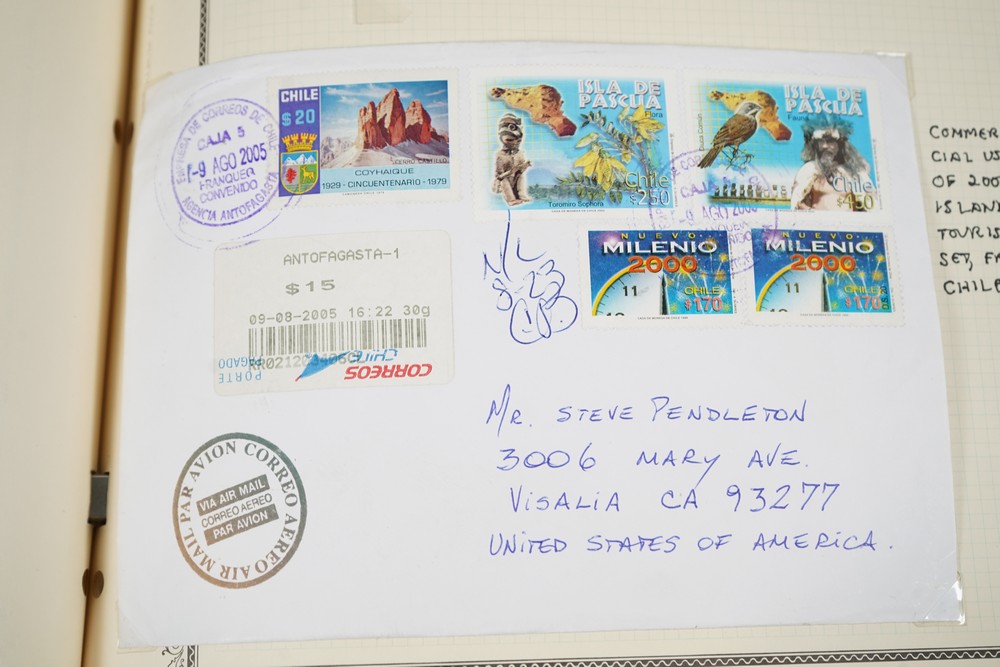 EMPRESA DE CORREOS DE CHILE
CAJA 5
-9 AGO 2005
FRANQUEO
CONVENIDO
AGENCIA ANTOFAGASTA
CHILE
$20
CERRO CASTILLO
COYHAIQUE
1929 - CINCUENTENARIO - 1979
ISLA DE
PASCUA
Flora
Chile
$250
Toromiro Sophora
ISLA DE
PASCUA
Fauna
Chile
$450
CAJA 5
-9 AGO 2005
NUEVO
MILENIO
2000
11
CHILE
$170
NUEVO
MILENIO
2000
11
CHILE
$170
ANTOFAGASTA-1
$15
09-08-2005 16:22 30g
CORREOS
CHILE
PORTE
PAGADO
NL
8-23
MR. STEVE PENDLETON
3006 MARY AVE.
VISALIA CA 93277
UNITED STATES OF AMERICA.
AIR MAIL PAR AVION CORREO AEREO
VIA AIR MAIL
CORREO AEREO
PAR AVION
COMMER
CIAL US
OF 200
ISLAN
TOURIS
SET, F
CHILE